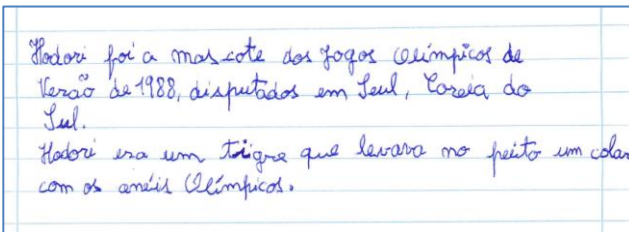 Hodori foi a mascote dos Jogos Olímpicos de
Verão de 1988, disputados em Seul, Coreia do
Sul.
Hodori era um tigre que levava no peito um colar
com os anéis Olímpicos.